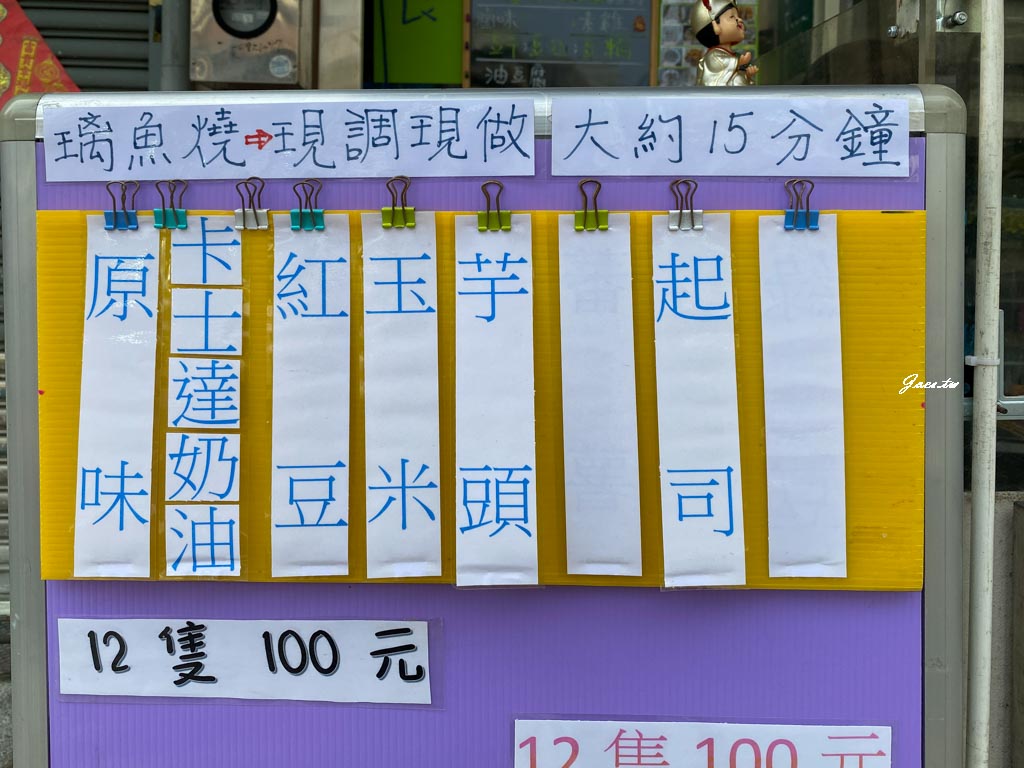 油豆腐
璃魚燒➡現調現做
大約15分鐘
原味
卡士達奶油
紅豆
玉米
芋頭
起司
Jaes.tw
12隻 100元
12隻 100元